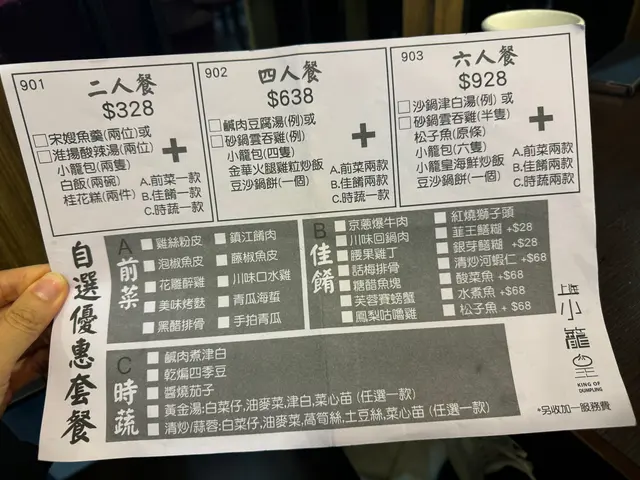 901
二人餐
$328
宋嫂魚羹(兩位)或
淮揚酸辣湯(兩位)
小籠包(兩隻)
白飯(兩碗)
桂花糕(兩件)
+
A.前菜一款
B.佳餚一款
C.時蔬一款
902
四人餐
$638
鹹肉豆腐湯(例)或
砂鍋雲吞雞(例)
小籠包(四隻)
金華火腿雞粒炒飯
豆沙鍋餅(一個)
+
A.前菜兩款
B.佳餚兩款
C.時蔬一款
903
六人餐
$928
沙鍋津白湯(例)或
砂鍋雲吞雞(半隻)
松子魚(原條)
小籠包(六隻)
小籠皇海鮮炒飯
豆沙鍋餅(一個)
+
A.前菜兩款
B.佳餚兩款
C.時蔬一款
自選優惠套餐
A
前菜
雞絲粉皮
泡椒魚皮
花雕醉雞
美味烤麩
黑醋排骨
鎮江餚肉
藤椒魚皮
川味口水雞
青瓜海蜇
手拍青瓜
B
佳餚
京蔥爆牛肉
川味回鍋肉
腰果雞丁
話梅排骨
糖醋魚塊
芙蓉賽螃蟹
鳳梨咕嚕雞
紅燒獅子頭
韮王鱔糊 +$28
銀芽鱔糊 +$28
清炒河蝦仁 +$68
酸菜魚 +$68
水煮魚 +$68
松子魚 +$68
C
時蔬
鹹肉煮津白
乾煸四季豆
醬燒茄子
黃金湯:白菜仔,油麥菜,津白,菜心苗 (任選一款)
清炒/蒜蓉:白菜仔,油麥菜,萵筍絲,土豆絲,菜心苗 (任選一款)
小籠皇
KING OF
DUMPLING
*另收加一服務費